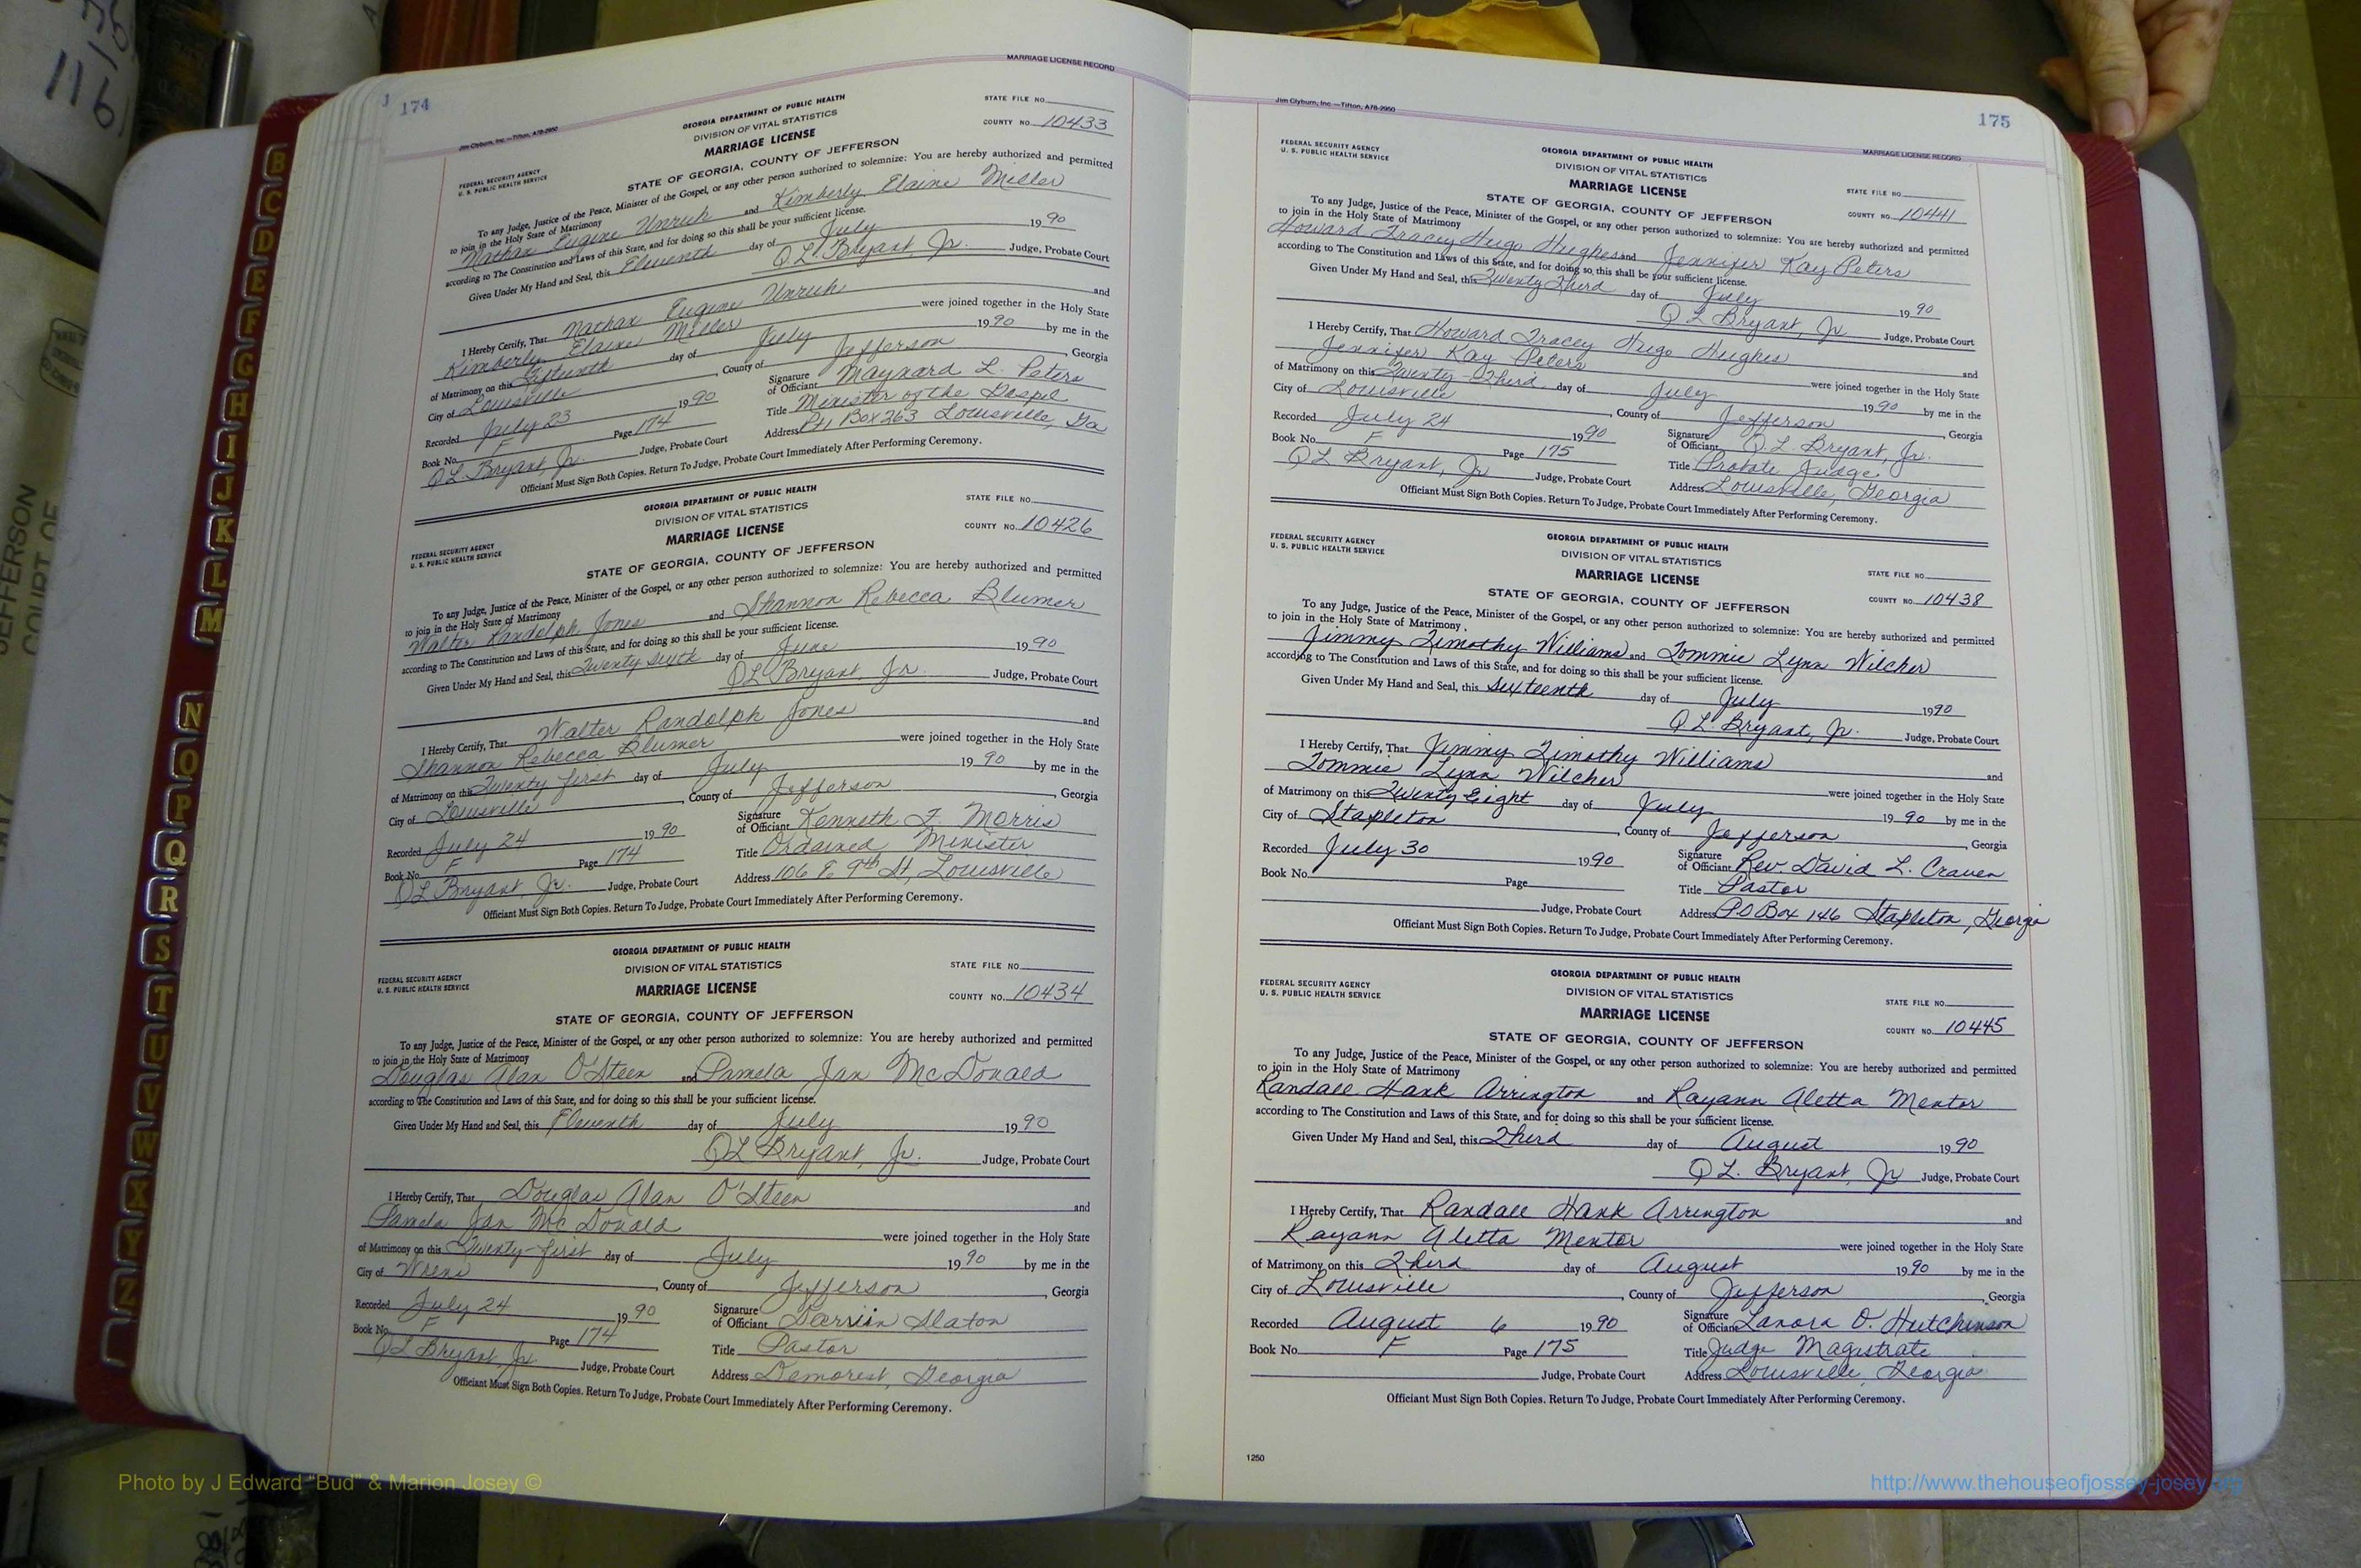 J 174
MARRIAGE LICENSE RECORD
Jim Clyburn, Inc.—Tifton, A78-2950
GEORGIA DEPARTMENT OF PUBLIC HEALTH
DIVISION OF VITAL STATISTICS
MARRIAGE LICENSE
STATE FILE NO.
COUNTY NO. 10433
FEDERAL SECURITY AGENCY
U. S. PUBLIC HEALTH SERVICE
STATE OF GEORGIA, COUNTY OF JEFFERSON
To any Judge, Justice of the Peace, Minister of the Gospel, or any other person authorized to solemnize: You are hereby authorized and permitted
to join in the Holy State of Matrimony
Nathan Eugene Unruh and Kimberly Elaine Miller
according to The Constitution and Laws of this State, and for doing so this shall be your sufficient license.
Given Under My Hand and Seal, this Eleventh day of July 1990
Q.L. Bryant, Jr. Judge, Probate Court
I Hereby Certify, That Nathan Eugene Unruh and
Kimberly Elaine Miller were joined together in the Holy State
of Matrimony on this Fifteenth day of July 1990 by me in the
City of Louisville, County of Jefferson, Georgia
Recorded July 23 1990 Signature of Officiant Maynard L. Peters
Book No. F Page 174 Title Minister of the Gospel
Q.L. Bryant, Jr. Judge, Probate Court Address Rt 1 Box 263 Louisville, Ga
Officiant Must Sign Both Copies. Return To Judge, Probate Court Immediately After Performing Ceremony.
GEORGIA DEPARTMENT OF PUBLIC HEALTH
DIVISION OF VITAL STATISTICS
MARRIAGE LICENSE
STATE FILE NO.
COUNTY NO. 10426
FEDERAL SECURITY AGENCY
U. S. PUBLIC HEALTH SERVICE
STATE OF GEORGIA, COUNTY OF JEFFERSON
To any Judge, Justice of the Peace, Minister of the Gospel, or any other person authorized to solemnize: You are hereby authorized and permitted
to join in the Holy State of Matrimony
Walter Randolph Jones and Shannon Rebecca Blumer
according to The Constitution and Laws of this State, and for doing so this shall be your sufficient license.
Given Under My Hand and Seal, this Twenty sixth day of June 1990
QL Bryant, Jr. Judge, Probate Court
I Hereby Certify, That Walter Randolph Jones and
Shannon Rebecca Blumer were joined together in the Holy State
of Matrimony on this Twenty first day of July 1990 by me in the
City of Louisville, County of Jefferson, Georgia
Recorded July 24 1990 Signature of Officiant Kenneth F. Morris
Book No. F Page 174 Title Ordained Minister
QL Bryant, Jr. Judge, Probate Court Address 106 E 9th St, Louisville
Officiant Must Sign Both Copies. Return To Judge, Probate Court Immediately After Performing Ceremony.
GEORGIA DEPARTMENT OF PUBLIC HEALTH
DIVISION OF VITAL STATISTICS
MARRIAGE LICENSE
STATE FILE NO.
COUNTY NO. 10434
FEDERAL SECURITY AGENCY
U. S. PUBLIC HEALTH SERVICE
STATE OF GEORGIA, COUNTY OF JEFFERSON
To any Judge, Justice of the Peace, Minister of the Gospel, or any other person authorized to solemnize: You are hereby authorized and permitted
to join in the Holy State of Matrimony
Douglas Alan O'Steen and Pamela Jan McDonald
according to The Constitution and Laws of this State, and for doing so this shall be your sufficient license.
Given Under My Hand and Seal, this Eleventh day of July 1990
QL Bryant, Jr. Judge, Probate Court
I Hereby Certify, That Douglas Alan O'Steen and
Pamela Jan McDonald were joined together in the Holy State
of Matrimony on this Twenty-first day of July 1990 by me in the
City of Wrens, County of Jefferson, Georgia
Recorded July 24 1990 Signature of Officiant Slaton
Book No. F Page 174 Title Pastor
QL Bryant, Jr. Judge, Probate Court Address Demorest, Georgia
Officiant Must Sign Both Copies. Return To Judge, Probate Court Immediately After Performing Ceremony.
Jim Clyburn, Inc.—Tifton, A78-2950
175
MARRIAGE LICENSE RECORD
FEDERAL SECURITY AGENCY
U. S. PUBLIC HEALTH SERVICE
GEORGIA DEPARTMENT OF PUBLIC HEALTH
DIVISION OF VITAL STATISTICS
MARRIAGE LICENSE
STATE FILE NO.
COUNTY NO. 10441
STATE OF GEORGIA, COUNTY OF JEFFERSON
To any Judge, Justice of the Peace, Minister of the Gospel, or any other person authorized to solemnize: You are hereby authorized and permitted
to join in the Holy State of Matrimony
Howard Tracey Hugo Hughes and Jennifer Kay Peters
according to The Constitution and Laws of this State, and for doing so this shall be your sufficient license.
Given Under My Hand and Seal, this Twenty Third day of July 1990
QL Bryant, Jr. Judge, Probate Court
I Hereby Certify, That Howard Tracey Hugo Hughes and
Jennifer Kay Peters were joined together in the Holy State
of Matrimony on this Twenty-Third day of July 1990 by me in the
City of Louisville, County of Jefferson, Georgia
Recorded July 24 1990 Signature of Officiant Q.L. Bryant, Jr.
Book No. F Page 175 Title Probate Judge
QL Bryant, Jr Judge, Probate Court Address Louisville, Georgia
Officiant Must Sign Both Copies. Return To Judge, Probate Court Immediately After Performing Ceremony.
FEDERAL SECURITY AGENCY
U. S. PUBLIC HEALTH SERVICE
GEORGIA DEPARTMENT OF PUBLIC HEALTH
DIVISION OF VITAL STATISTICS
MARRIAGE LICENSE
STATE FILE NO.
COUNTY NO. 10438
STATE OF GEORGIA, COUNTY OF JEFFERSON
To any Judge, Justice of the Peace, Minister of the Gospel, or any other person authorized to solemnize: You are hereby authorized and permitted
to join in the Holy State of Matrimony
Jimmy Timothy Williams and Tommie Lynn Wilcher
according to The Constitution and Laws of this State, and for doing so this shall be your sufficient license.
Given Under My Hand and Seal, this Sixteenth day of July 1990
Q.L. Bryant, Jr. Judge, Probate Court
I Hereby Certify, That Jimmy Timothy Williams and
Tommie Lynn Wilcher were joined together in the Holy State
of Matrimony on this Twenty Eight day of July 1990 by me in the
City of Stapleton, County of Jefferson, Georgia
Recorded July 30 1990 Signature of Officiant Rev. David L. Craven
Book No. Page Title Pastor
Judge, Probate Court Address PO Box 146 Stapleton, Georgia
Officiant Must Sign Both Copies. Return To Judge, Probate Court Immediately After Performing Ceremony.
FEDERAL SECURITY AGENCY
U. S. PUBLIC HEALTH SERVICE
GEORGIA DEPARTMENT OF PUBLIC HEALTH
DIVISION OF VITAL STATISTICS
MARRIAGE LICENSE
STATE FILE NO.
COUNTY NO. 10445
STATE OF GEORGIA, COUNTY OF JEFFERSON
To any Judge, Justice of the Peace, Minister of the Gospel, or any other person authorized to solemnize: You are hereby authorized and permitted
to join in the Holy State of Matrimony
Randall Hank Arrington and Rayann Aletta Mentor
according to The Constitution and Laws of this State, and for doing so this shall be your sufficient license.
Given Under My Hand and Seal, this Third day of August 1990
QL. Bryant, Jr Judge, Probate Court
I Hereby Certify, That Randall Hank Arrington and
Rayann Aletta Mentor were joined together in the Holy State
of Matrimony on this Third day of August 1990 by me in the
City of Louisville, County of Jefferson, Georgia
Recorded August 6 1990 Signature of Officiant Lanora O. Hutchinson
Book No. F Page 175 Title Judge Magistrate
Judge, Probate Court Address Louisville, Georgia
Officiant Must Sign Both Copies. Return To Judge, Probate Court Immediately After Performing Ceremony.
1250
B
C
D
E
F
G
H
I
J
K
L
M
N
O
P
Q
R
S
T
U
V
W
X
Y
Z
JEFFERSON
COURT OF
Photo by J Edward "Bud" & Marion Josey ©
http://www.thehouseofjossey-josey.org